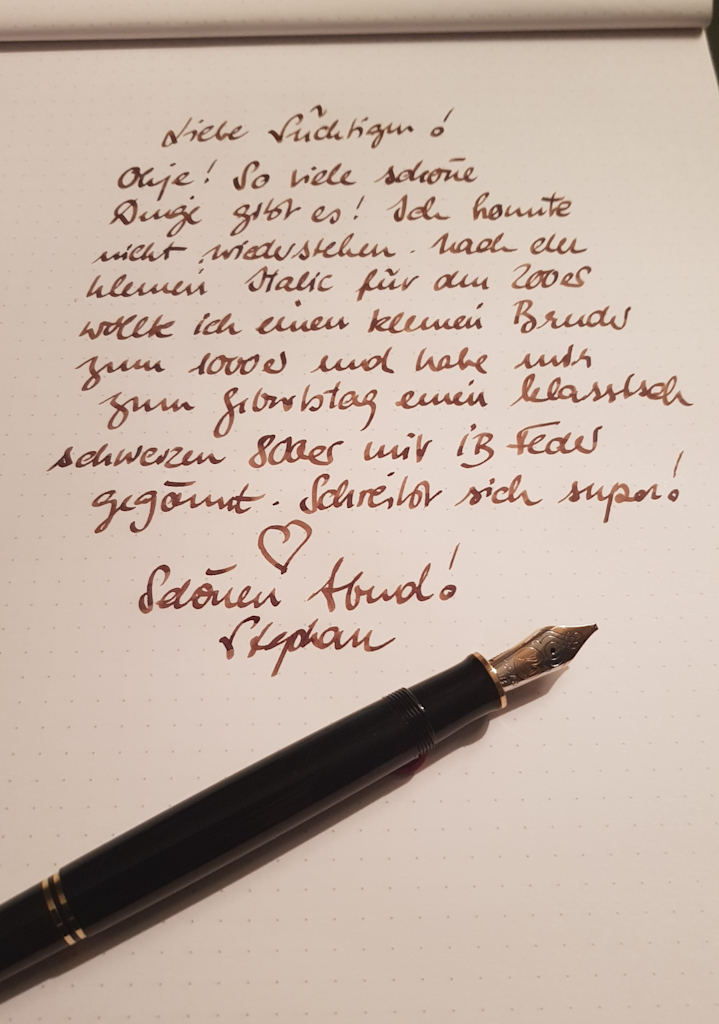 Liebe Süchtigen!
Ohje! So viele schöne
Dinge gibt es! Ich konnte
nicht wiederstehen. Nach der
kleinen Italic für den 200er
wollte ich einen kleinen Bruder
zum 1000er und habe mir
zum Geburtstag einen klassisch
schwarzen 800er mit iB Feder
gegönnt. Schreibt sich super!
Schönen Abend!
Stephan